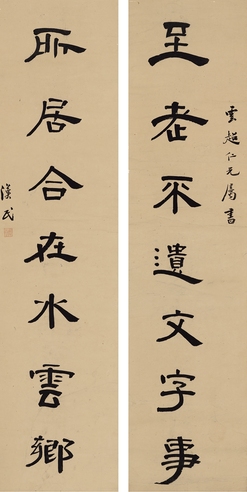 雲超仁兄屬書
至老不遺文字事
所居合在水雲鄉
漢民